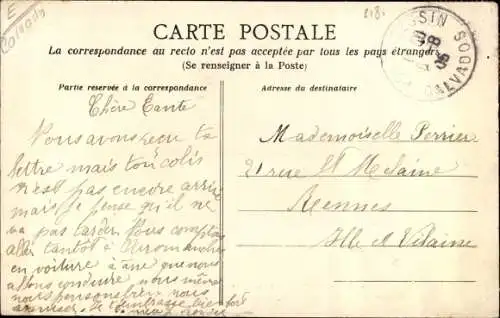 218.
Calvados
CARTE POSTALE
La correspondance au recto n'est pas acceptée par tous les pays étrangers
(Se renseigner à la Poste)
SSIN
CALVADOS
Partie reservée à la correspondance
Adresse du destinataire
Chère Tante
Nous avons reçu ta
lettre mais ton colis
n'est pas encore arrivé
mais je pense qu'il ne
va pas tarder. Nous comptons
aller tantôt à Arromanches
en voiture à âne que nous
allons conduire nous mêmes
nous pensons bien nous
amuser. Je t'embrasse bien fort
Mademoiselle Perrier
21 rue St Melaine
Rennes
Ille et Vilaine